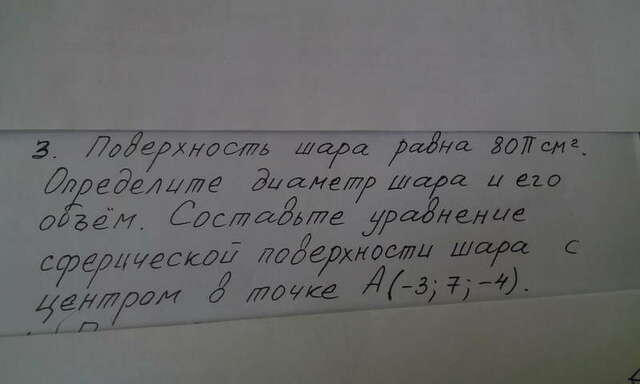 3. Поверхность шара равна 80π см².
Определите диаметр шара и его
объём. Составьте уравнение
сферической поверхности шара с
центром в точке А(-3; 7; -4).